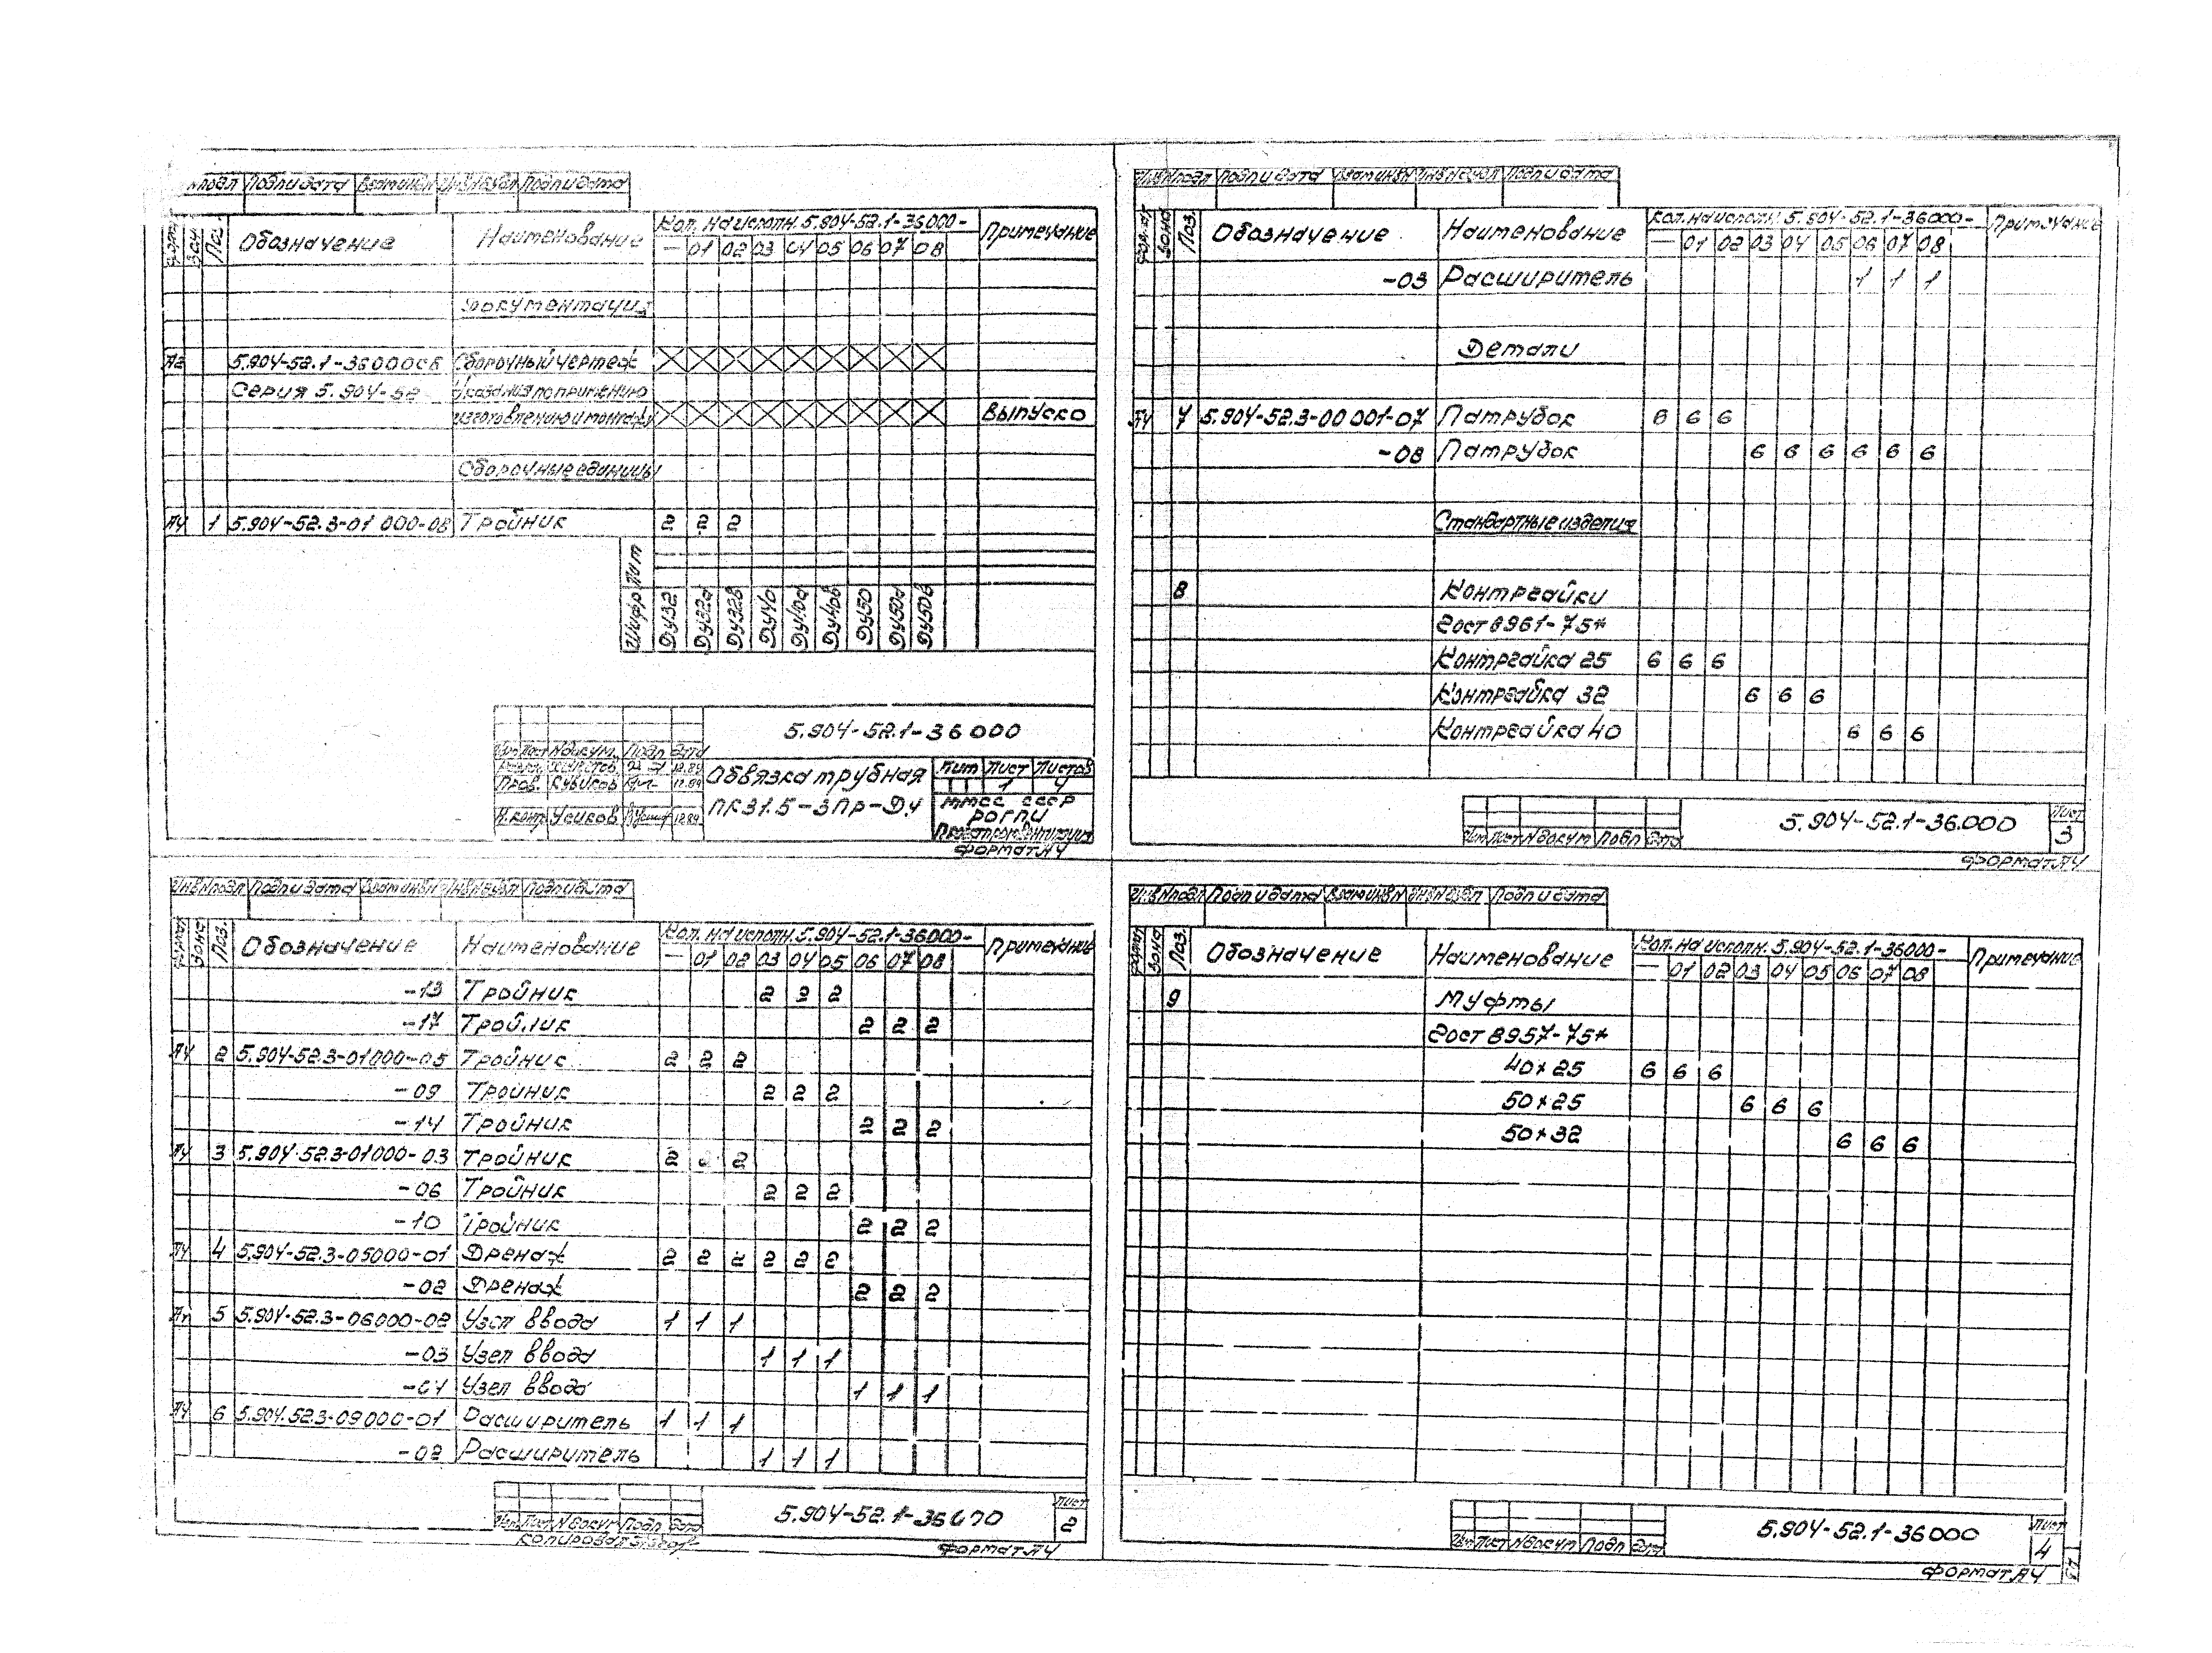 Подп и дата Взам инв N Подп и дата
Поз. Обозначение Наименование Кол. на исполн. 5.904-52.1-36000- Примечание
— 01 02 03 04 05 06 07 08
Документация
5.904-52.1-36000СБ Сборочный чертеж
Серия 5.904-52
изготовлению и монтажу Выпуск 0
Сборочные единицы
А4 1 5.904-52.3-01 000-08 Тройник 2 2 2
Шифр Лит
Ду32 Ду32а Ду32в Ду40 Ду40а Ду40в Ду50 Ду50а Ду50в
5.904-52.1-36 000
Изм Лист N докум. Подп Дата
12.89
Пров. 12.89
Н.контр Усиков 12.89
Обвязка трубная
ПК31.5-3Пр-Ду
Лит Лист Листов
1 4
ММСС СССР
РОГПИ
Проектпромвентиляция
Формат А4
Инв N подл Подп и дата Взам инв N Подп и дата
Формат Зона Поз. Обозначение Наименование Кол. на исполн. 5.904-52.1-36000- Примечание
— 01 02 03 04 05 06 07 08
-13 Тройник 2 2 2
-17 Тройник 2 2 2
А4 2 5.904-52.3-01000-05 Тройник 2 2 2
-09 Тройник 2 2 2
-14 Тройник 2 2 2
А4 3 5.904-52.3-01000-03 Тройник 2 2 2
-06 Тройник 2 2 2
-10 Тройник 2 2 2
А4 4 5.904-52.3-05000-01 Дренаж 2 2 2 2 2 2
-02 Дренаж 2 2 2
А4 5 5.904-52.3-06000-02 Узел ввода 1 1 1
-03 Узел ввода 1 1 1
-04 Узел ввода 1 1 1
А4 6 5.904.52.3-09000-01 Расширитель 1 1 1
-02 Расширитель 1 1 1
Изм Лист N докум Подп Дата
5.904-52.1-36000
Лист
2
Копировал
Формат А4
Инв N подл Подп и дата Взам инв N Подп и дата
Формат Зона Поз. Обозначение Наименование Кол. на исполн. 5.904-52.1-36000- Примечание
— 01 02 03 04 05 06 07 08
-03 Расширитель 1 1 1
Детали
А4 7 5.904-52.3-00 001-07 Патрубок 6 6 6
-08 Патрубок 6 6 6 6 6 6
Стандартные изделия
8 Контргайки
Гост 8961-75*
Контргайка 25 6 6 6
Контргайка 32 6 6 6
Контргайка 40 6 6 6
Изм Лист N докум Подп Дата
5.904-52.1-36.000
Лист
3
Формат А4
Инв N подл Подп и дата Взам инв N Подп и дата
Формат Зона Поз. Обозначение Наименование Кол. на исполн. 5.904-52.1-36000- Примечание
— 01 02 03 04 05 06 07 08
9 Муфты
Гост 8957-75*
40×25 6 6 6
50×25 6 6 6
50×32 6 6 6
Изм Лист N докум Подп Дата
5.904-52.1-36000
Лист
4
Формат А4